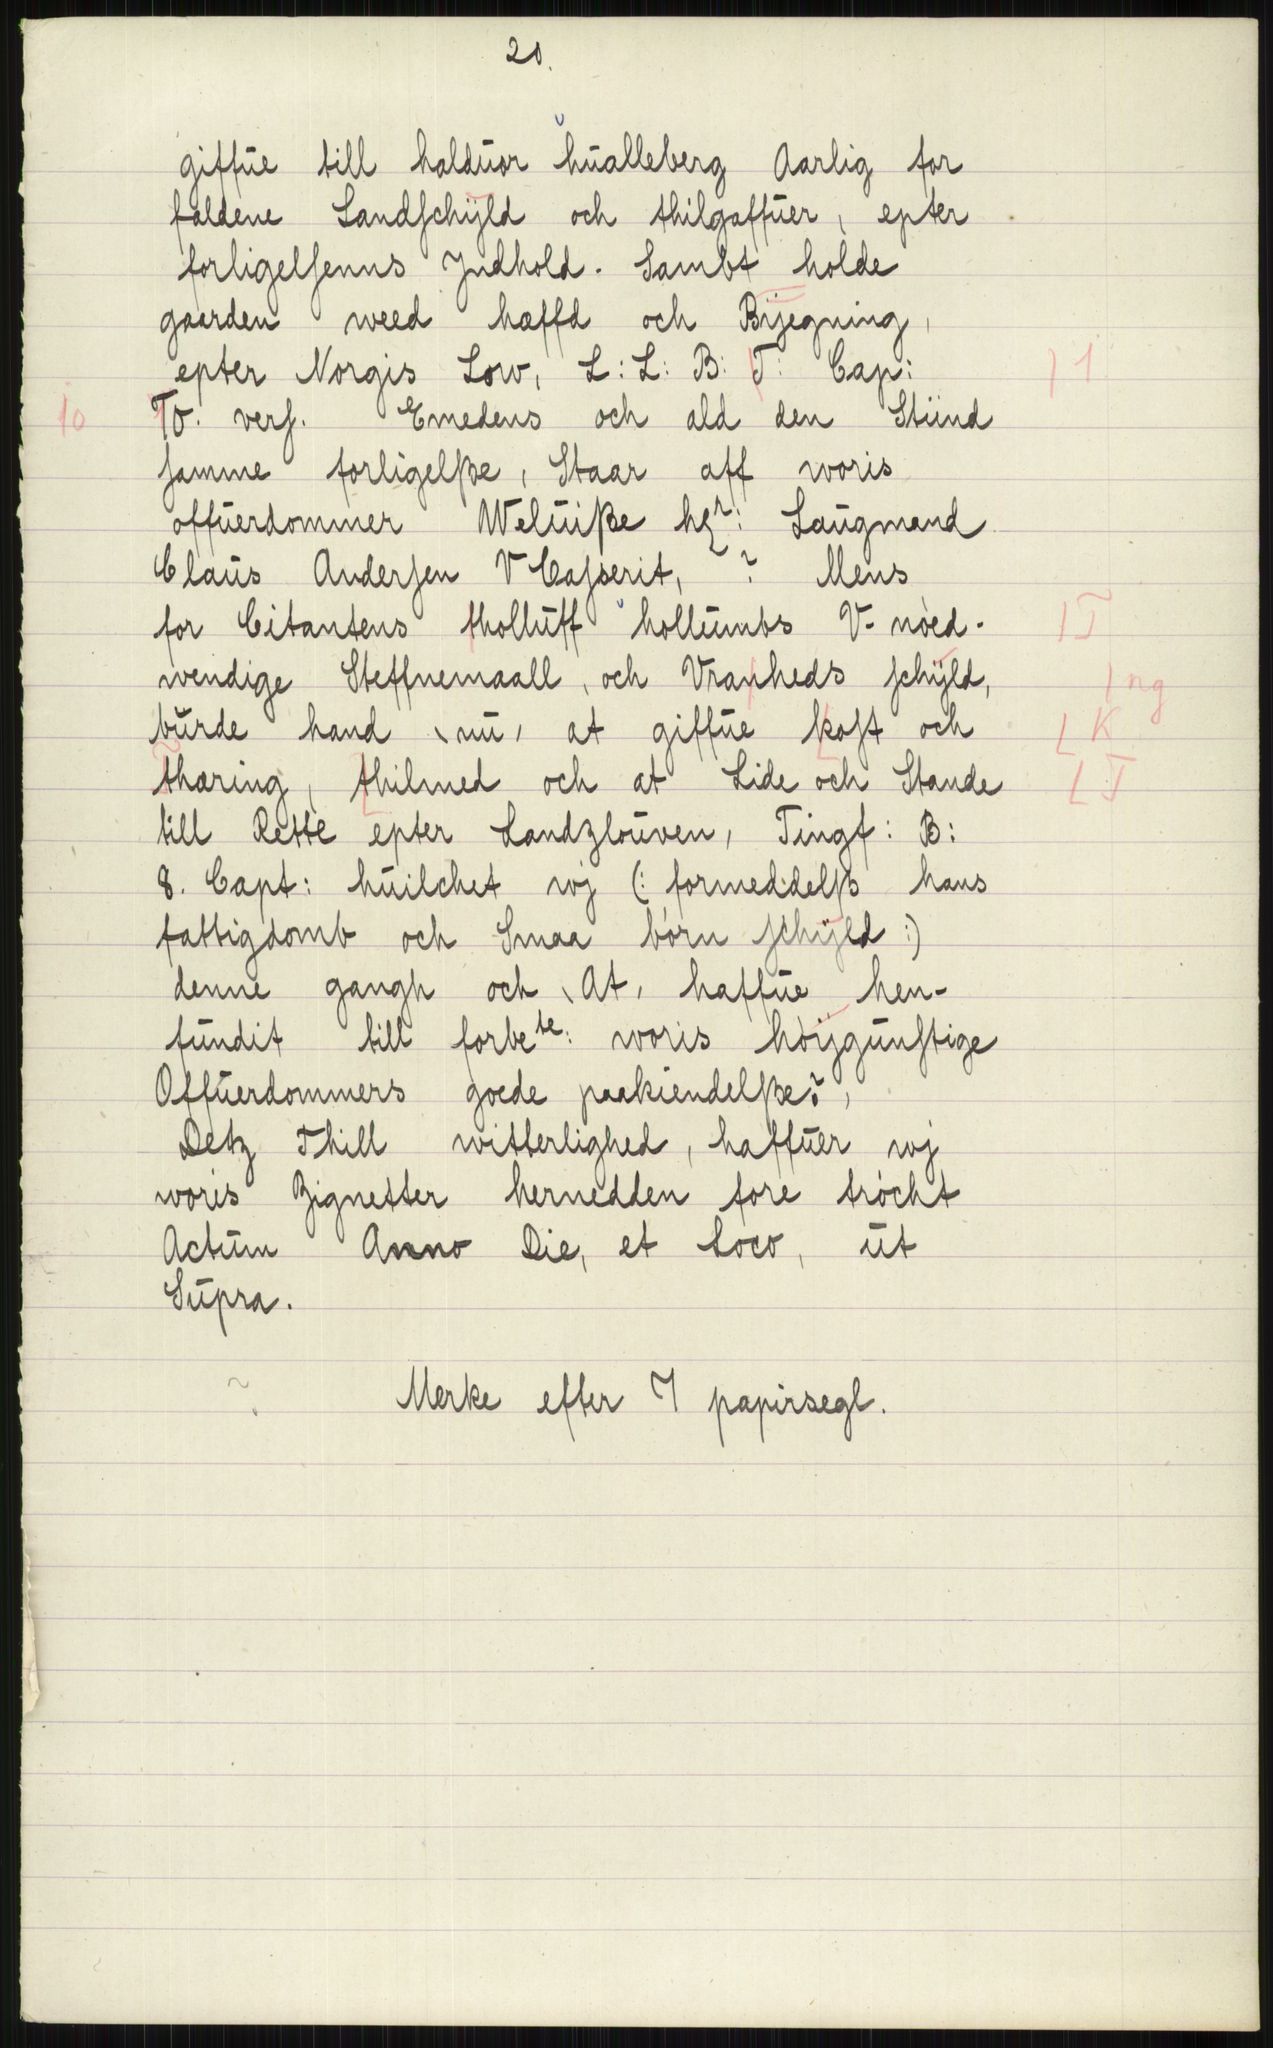 20.
giffue till halduor hualleberg Aarlig for
faldene Landschÿld och thilgaffuer, epter
forligelsenns Jndhold. Sambt holde
gaarden weed hæffd och Bijegning,
epter Norgis Low, L: L: B: T: Cap: | 1
10 To. vers. Emedens och ald den Stund
samme forligelße, Staar aff woris
offuerdommer Weluiße hr: Laugmand
Claus Andersen V Casserit, ? Mens
for Citantens tholluff hollumbs V-nöed- | T
wendige Steffnemaall, och Vranheds schÿld, | ng
burde hand, nu, at giffue kost och | K
thæring, thilmed och at Lide och Stande | T
till Rette epter Landzlouven, Tingf: B:
8. Capt: huilchet wj (: formeddelß hans
fattigdomb och Smaa börn schÿld :)
denne gangh och, At, haffue hen-
fundit till forbete: woris höÿgunstige
Offuerdommers goede paakiendelße?,
Detz Thill witterlighed, haffuer wj
woris Zignetter hernedden fore tröcht
Actum Anno Die, et Loco, ut
Supra.
Merke efter 7 papirsegl.